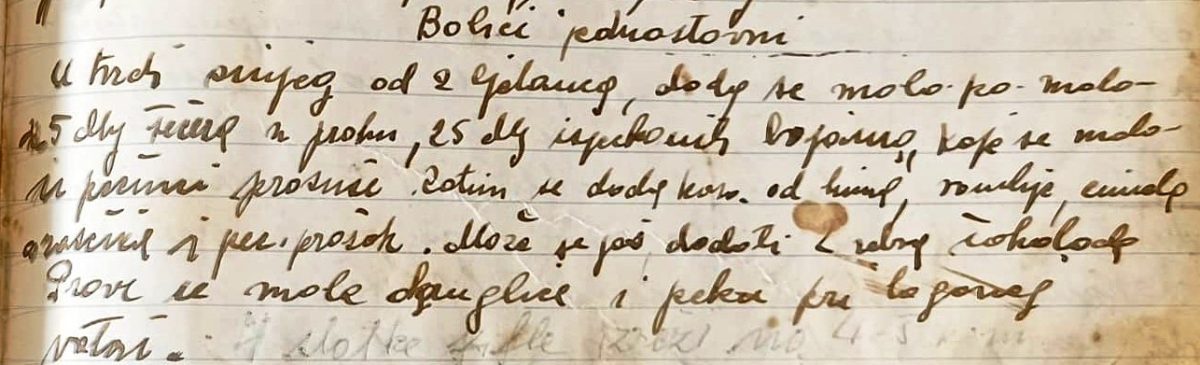 Bolići jednostavni
U tvrdi snijeg od 2 bjelanca, doda se malo-po-malo-
25 dkg šećera u prahu, 25 dkg isjeckanih bajama, koje se malo
u pećnici prosuše. Zatim se doda kora od limuna, vanilije,
i pec. prašak. Može se još dodati 2 rebra čokolade
Prave se male kuglice i peku pri laganoj
vatri.